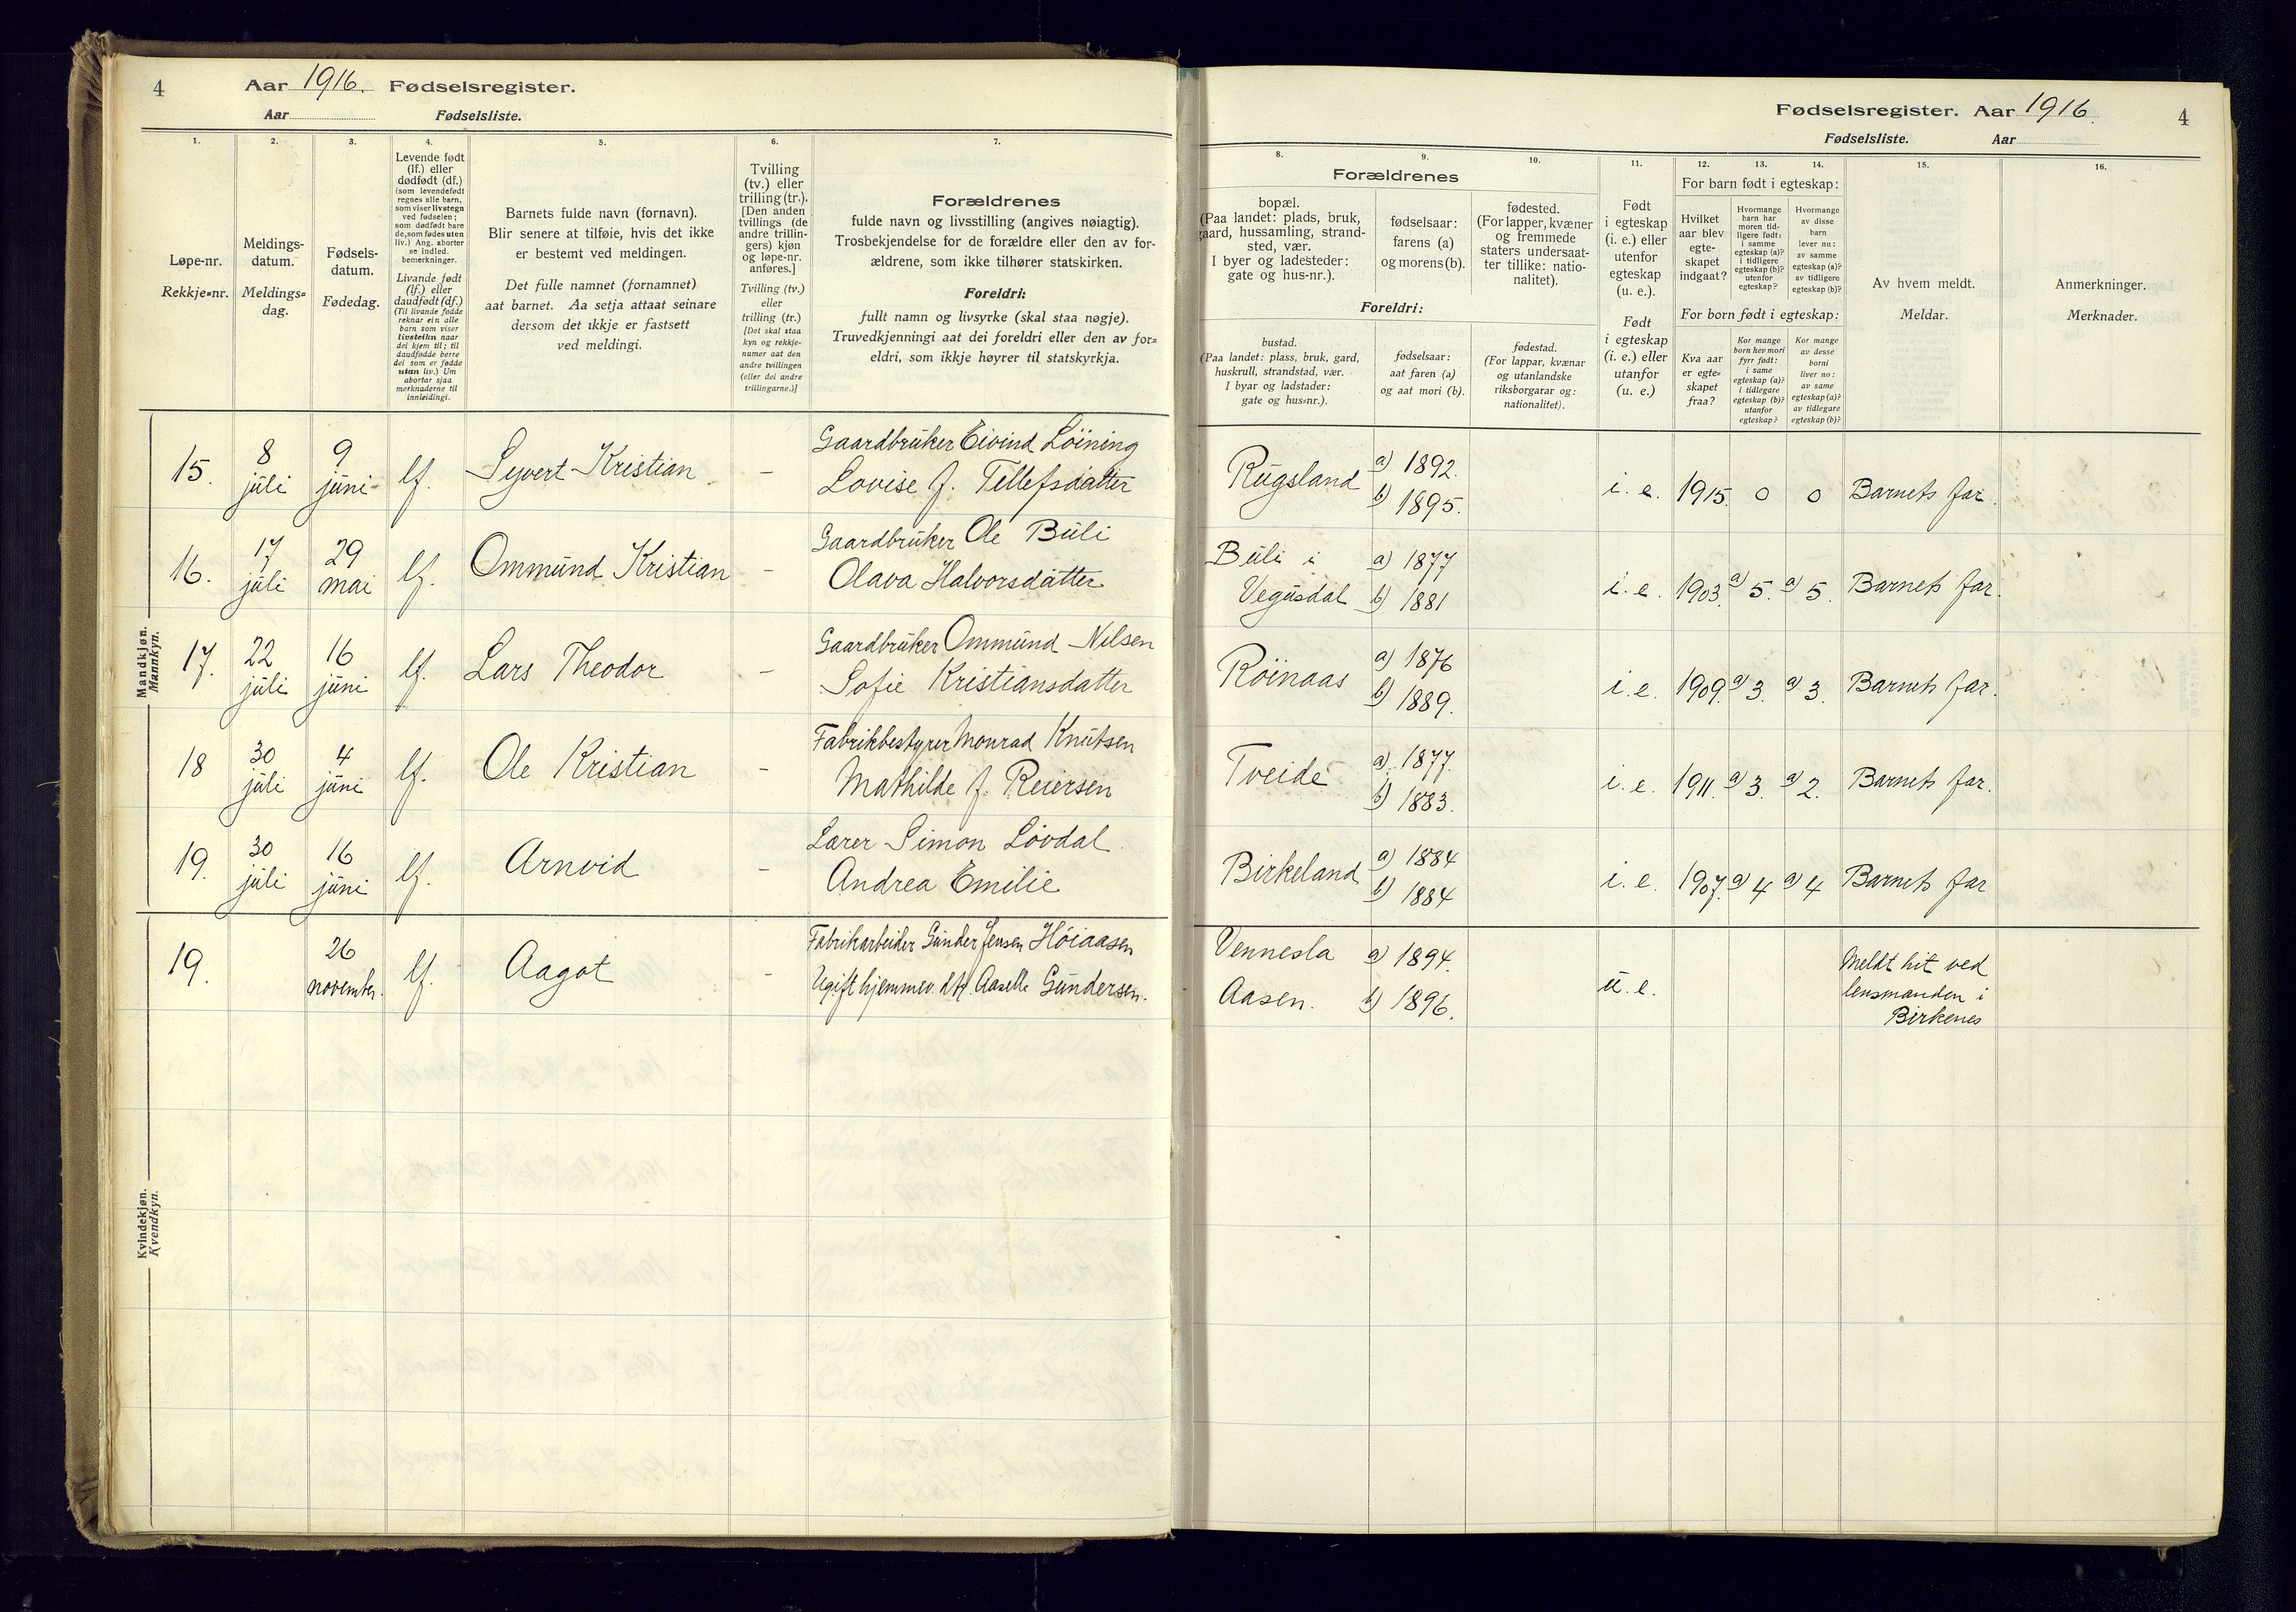 4 Aar 1916. Fødselsregister.
Aar Fødselsliste.
1.
Løpe-nr.
Rekkje=nr.
2.
Meldings-
datum.
Meldings=
dag.
3.
Fødsels-
datum.
Fødedag.
4.
Levende født
(lf.) eller
dødfødt (df.)
(som levendefødt
regnes alle barn,
som viser livstegn
ved fødselen;
som dødfødt bare
de, som fødes uten
liv.) Ang. aborter
se indled.
bemerkninger.
Livande født
(lf.) eller
daudfødt (df.)
(Til livande fødde
reknar ein alle
barn som viser
livsteikn naar
dei kjem til; til
daudfødde berre
dei som er fødde
utan liv.) Um
abortar sjaa
merknaderne til
innleidingi.
5.
Barnets fulde navn (fornavn).
Blir senere at tilføie, hvis det ikke
er bestemt ved meldingen.
Det fulle namnet (fornamnet)
aat barnet. Aa setja attaat seinare
dersom det ikkje er fastsett
ved meldingi.
6.
Tvilling
(tv.) eller
trilling (tr.).
[Den anden
tvillings (de
andre trillin-
gers) kjøn
og løpe-nr.
anføres.]
Tvilling (tv.)
eller
trilling (tr.)
[Det skal staa
kyn og rekkje-
numer aat den
andre tvillingen
(eller dei andre
trillingarne.)]
7.
Forældrenes
fulde navn og livsstilling (angives nøiagtig).
Trosbekjendelse for de forældre eller den av for-
ældrene, som ikke tilhører statskirken.
Foreldri:
fullt namn og livsyrke (skal staa nøgje).
Truvedkjenningi aat dei foreldri eller den av for=
eldri, som ikkje høyrer til statskyrkja.
Mandkjøn.
Mannkyn.
15. 8 juli 9 juni lf. Syvert Kristian – Gaardbruker Eivind Löining
Lovise f. Tellefsdatter
16. 17 juli 29 mai lf. Ommund Kristian – Gaardbruker Ole Buli
Olava Halvorsdatter
17. 22 juli 16 juni lf. Lars Theodor – Gaardbruker Ommund Nilsen
Sofie Kristiansdatter
18 30 juli 4 juni lf. Ole Kristian – Fabrikbestyrer Monrad Knutsen
Mathilde f. Reiersen
19. 30 juli 16 juni lf. Arnvid – Lærer Simon Lövdal
Andrea Emilie
Kvindekjøn.
Kvendkyn.
19. 26 november. lf. Aagot – Fabrikarbeider Gunder Jensen Höiaasen
Ugift hjemmev. dtr. Aaselle Gundersen.
Fødselsregister. Aar 1916. 4
Fødselsliste. Aar
8.
Forældrenes
bopæl.
(Paa landet: plads, bruk,
gaard, hussamling, strand-
sted, vær.
I byer og ladesteder:
gate og hus-nr.).
Foreldri:
bustad.
(Paa landet: plass, bruk, gard,
huskrull, strandstad, vær.
I byar og ladstader:
gate og hus=nr.).
9.
fødselsaar:
farens (a)
og morens (b).
fødselsaar:
aat faren (a)
og aat mori (b).
10.
fødested.
(For lapper, kvæner
og fremmede
staters undersaat-
ter tillike: natio-
nalitet).
fødestad.
(For lappar, kvænar
og utanlandske
riksborgarar og:
nationalitet).
11.
Født
i egteskap
(i. e.) eller
utenfor
egteskap
(u. e.).
Født
i egteskap
(i. e.) eller
utanfor
(u. e.)
12. 13. 14.
For barn født i egteskap:
Hvilket
aar blev
egte-
skapet
indgaat?
Hvormange
barn har
moren tid-
ligere født:
i samme
egteskap (a)?
i tidligere
egteskap (b)?
utenfor
egteskap?
Hvormange
av disse
barn
lever nu:
av samme
egteskap (a)?
av tidligere
egteskap (b)?
For born født i egteskap:
Kva aar
er egte=
skapet
fraa?
Kor mange
born hev mori
fyrr født:
i same
egteskap (a)?
i tidlegare
egteskap (b)?
utanfor
egteskap?
Kor mange
av desse
borni
liver no:
av same
egteskap (a)?
av tidlegare
egteskap (b)?
15.
Av hvem meldt.
Meldar.
16.
Anmerkninger.
Merknader.
Rugsland a) 1892. b) 1895. i. e. 1915. 0 0 Barnets far.
Buli i Vegusdal a) 1877 b) 1881 i. e. 1903. a) 5. a) 5. Barnets far.
Röinaas a) 1876 b) 1889. i. e. 1909. a) 3. a) 3. Barnets far.
Tveide a) 1877. b) 1883. i. e. 1911. a) 3. a) 2. Barnets far.
Birkeland a) 1884 b) 1884 i. e. 1907. a) 4 a) 4 Barnets far
Vennesla a) 1894.
Aasen. b) 1896. u. e. Meldt hit ved
lensmanden i
Birkenes